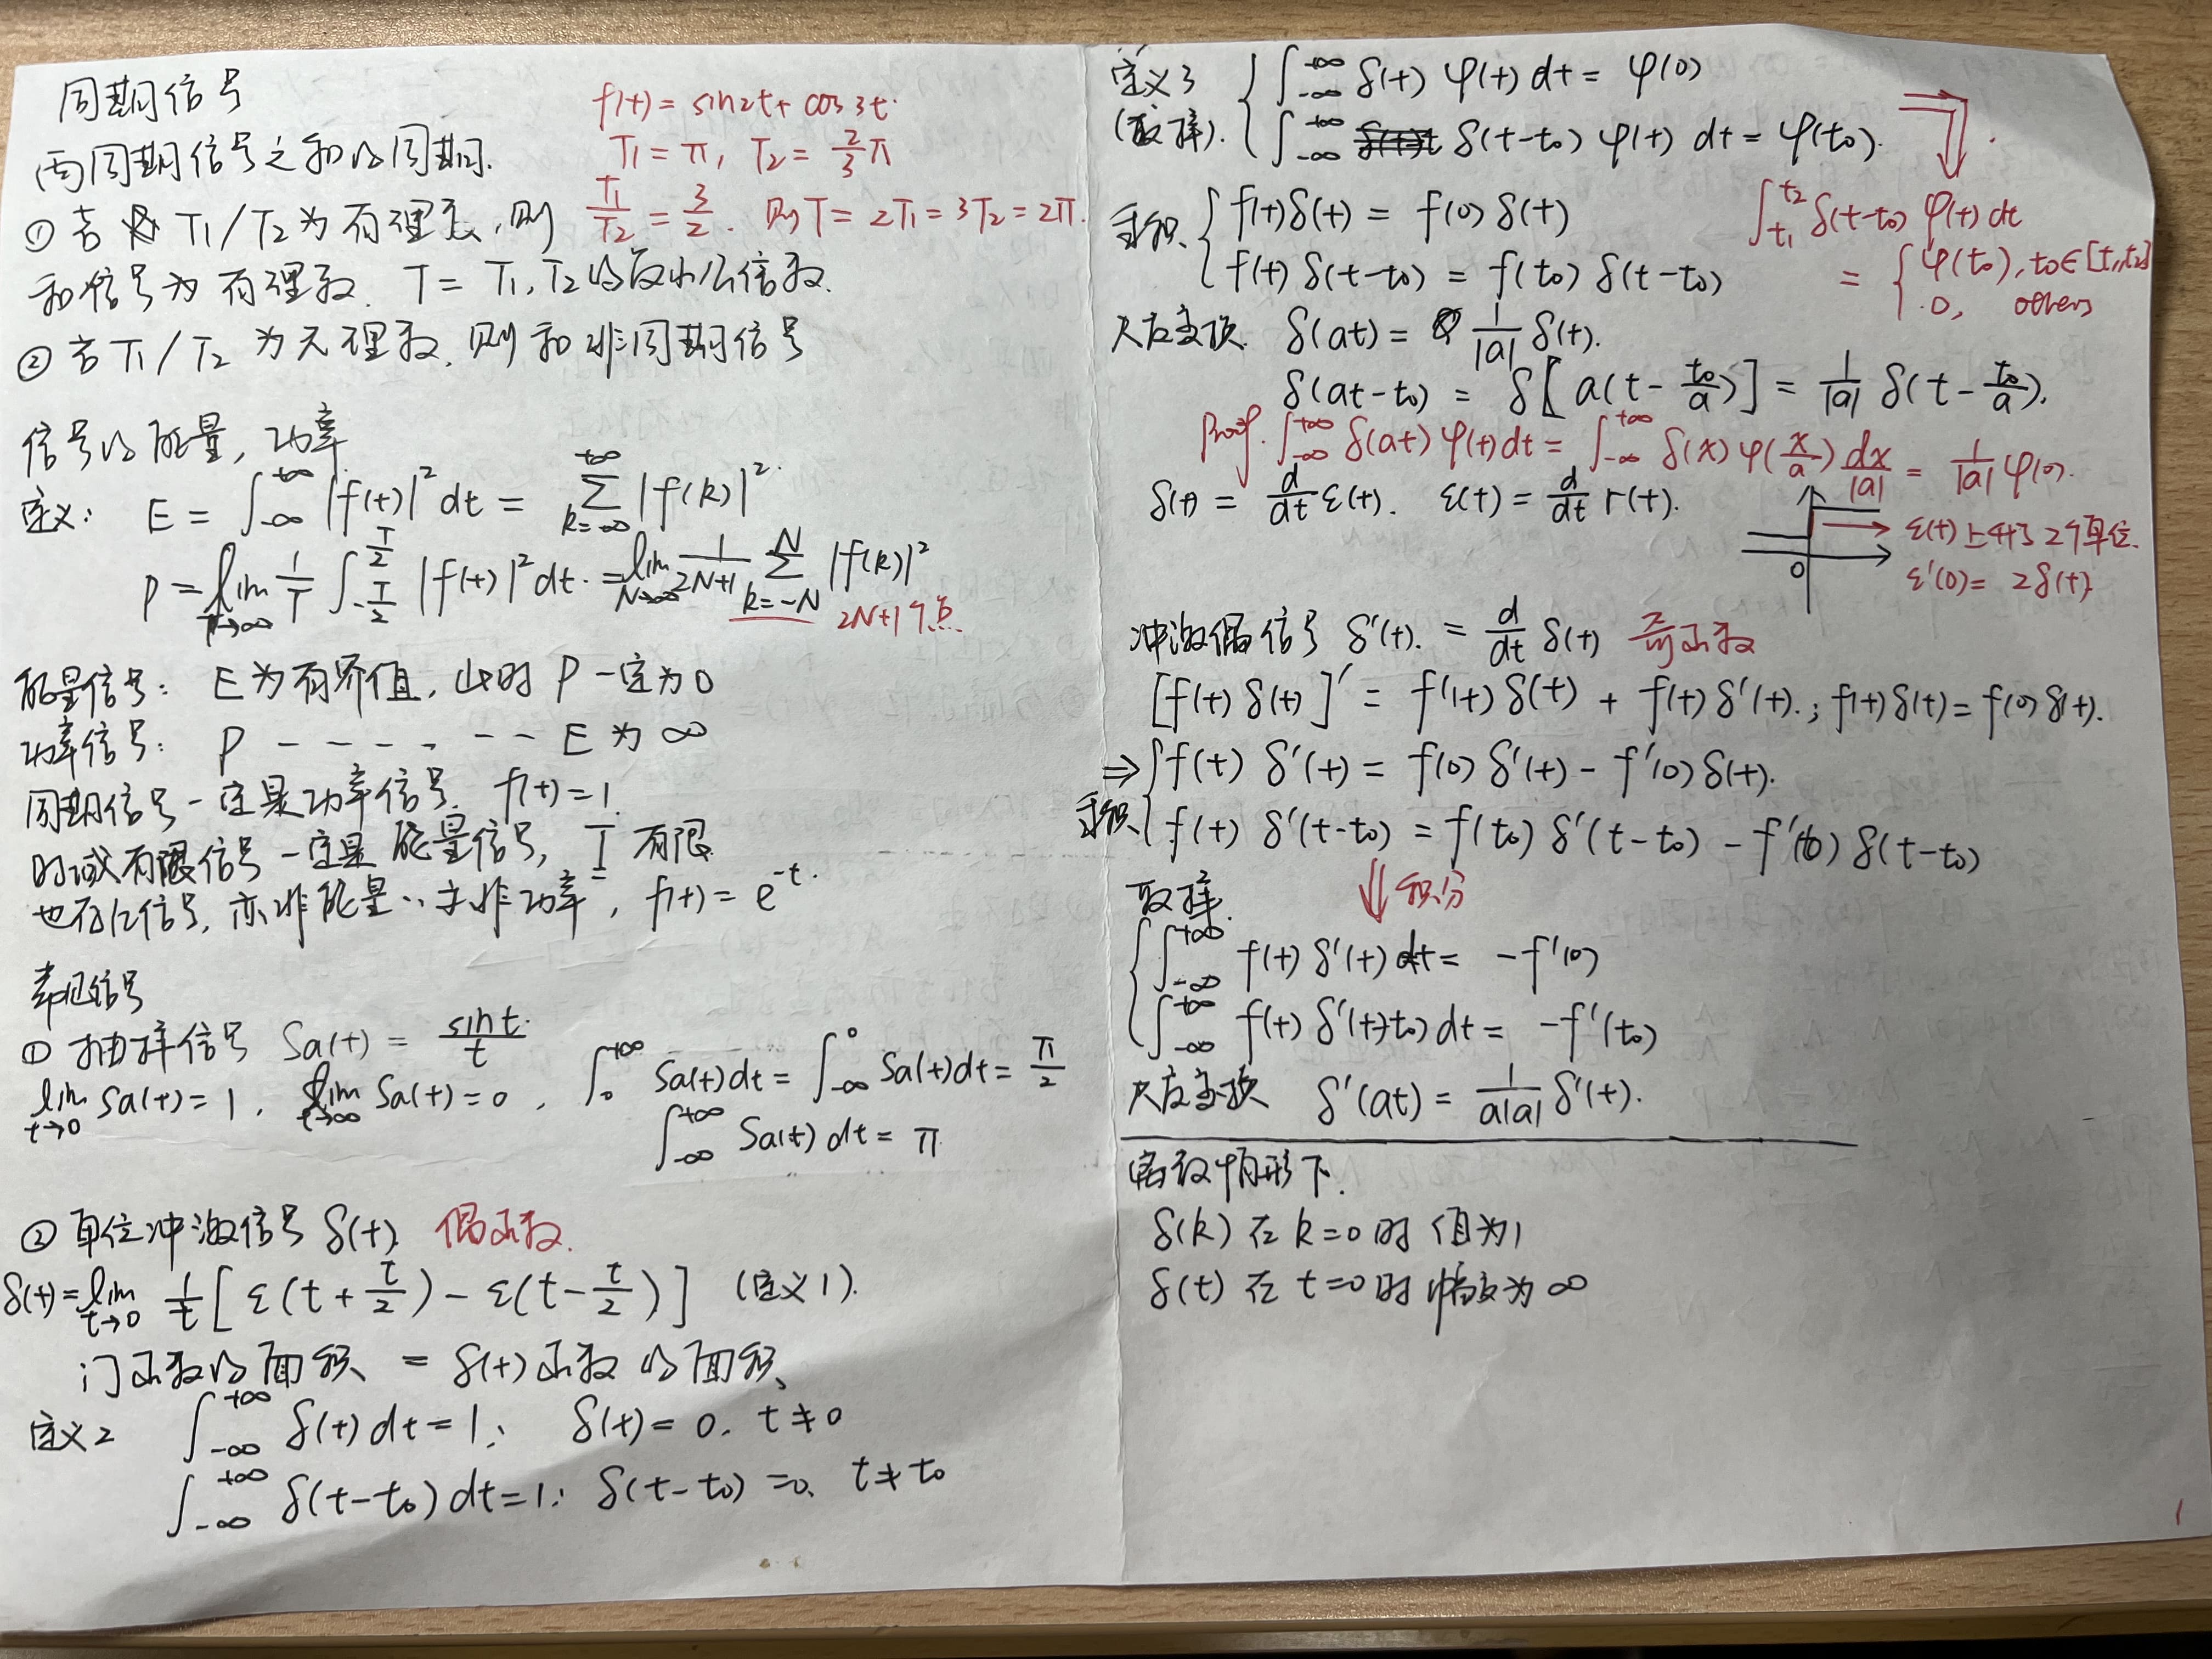 周期信号
两周期信号之和的周期.
f(t) = sin2t + cos3t.
T₁ = π, T₂ = 2/3 π
① 若 T₁/T₂ 为有理数, 则
T₁/T₂ = 3/2. 则 T = 2T₁ = 3T₂ = 2π.
和信号为有理数. T = T₁, T₂的最小公倍数.
② 若 T₁/T₂ 为无理数, 则和非周期信号
信号的能量, 功率
定义: E = ∫_{-∞}^{+∞} |f(t)|² dt = Σ_{k=-∞}^{+∞} |f(k)|².
P = lim_{T→∞} 1/T ∫_{-T/2}^{T/2} |f(t)|² dt. = lim_{N→∞} 1/(2N+1) Σ_{k=-N}^{N} |f(k)|²
2N+1个点
能量信号: E为有界值, 此时 P 一定为0
功率信号: P - - - - - - E 为 ∞
周期信号一定是功率信号. f(t) = 1.
时域有限信号一定是能量信号, T 有限
也存在信号, 亦非能量.. 亦非功率, f(t) = e^{-t}.
典型信号
① 抽样信号 Sa(t) = sin t / t
lim_{t→0} Sa(t) = 1, lim_{t→∞} Sa(t) = 0, ∫_0^{+∞} Sa(t)dt = ∫_{-∞}^0 Sa(t)dt = π/2
∫_{-∞}^{+∞} Sa(t) dt = π
② 单位冲激信号 δ(t) 偶函数.
δ(t) = lim_{t→0} 1/t [ε(t + t/2) - ε(t - t/2)] (定义1).
门函数的面积 = δ(t)函数的面积
定义2 ∫_{-∞}^{+∞} δ(t) dt = 1; δ(t) = 0. t ≠ 0
∫_{-∞}^{+∞} δ(t-t₀) dt = 1; δ(t-t₀) = 0. t ≠ t₀
定义3 { ∫_{-∞}^{+∞} δ(t) φ(t) dt = φ(0)
(取样). ∫_{-∞}^{+∞} δ(t-t₀) φ(t) dt = φ(t₀).
∫_{t₁}^{t₂} δ(t-t₀) φ(t) dt
= { φ(t₀), t₀∈[t₁,t₂]
0, others
乘积 { f(t)δ(t) = f(0) δ(t)
f(t) δ(t-t₀) = f(t₀) δ(t-t₀)
尺度变换 δ(at) = 1/|a| δ(t).
δ(at-t₀) = δ[a(t - t₀/a)] = 1/|a| δ(t - t₀/a).
Proof. ∫_{-∞}^{+∞} δ(at) φ(t) dt = ∫_{-∞}^{+∞} δ(x) φ(x/a) dx/|a| = 1/|a| φ(0).
δ(t) = d/dt ε(t). ε(t) = d/dt r(t).
0
ε(t)上升了2个单位.
ε'(0) = 2δ(t)
冲激偶信号 δ'(t). = d/dt δ(t) 奇函数
[f(t) δ(t)]' = f'(t) δ(t) + f(t) δ'(t).; f(t)δ(t) = f(0)δ(t).
⇒ { f(t) δ'(t) = f(0) δ'(t) - f'(0) δ(t).
乘积 f(t) δ'(t-t₀) = f(t₀) δ'(t-t₀) - f'(t₀) δ(t-t₀)
⇓ 积分
取样.
{ ∫_{-∞}^{+∞} f(t) δ'(t) dt = -f'(0)
∫_{-∞}^{+∞} f(t) δ'(t-t₀) dt = -f'(t₀)
尺度变换 δ'(at) = 1/(a|a|) δ'(t).
离散情形下.
δ(k) 在 k=0 时 值为1
δ(t) 在 t=0 时 幅度为 ∞
1